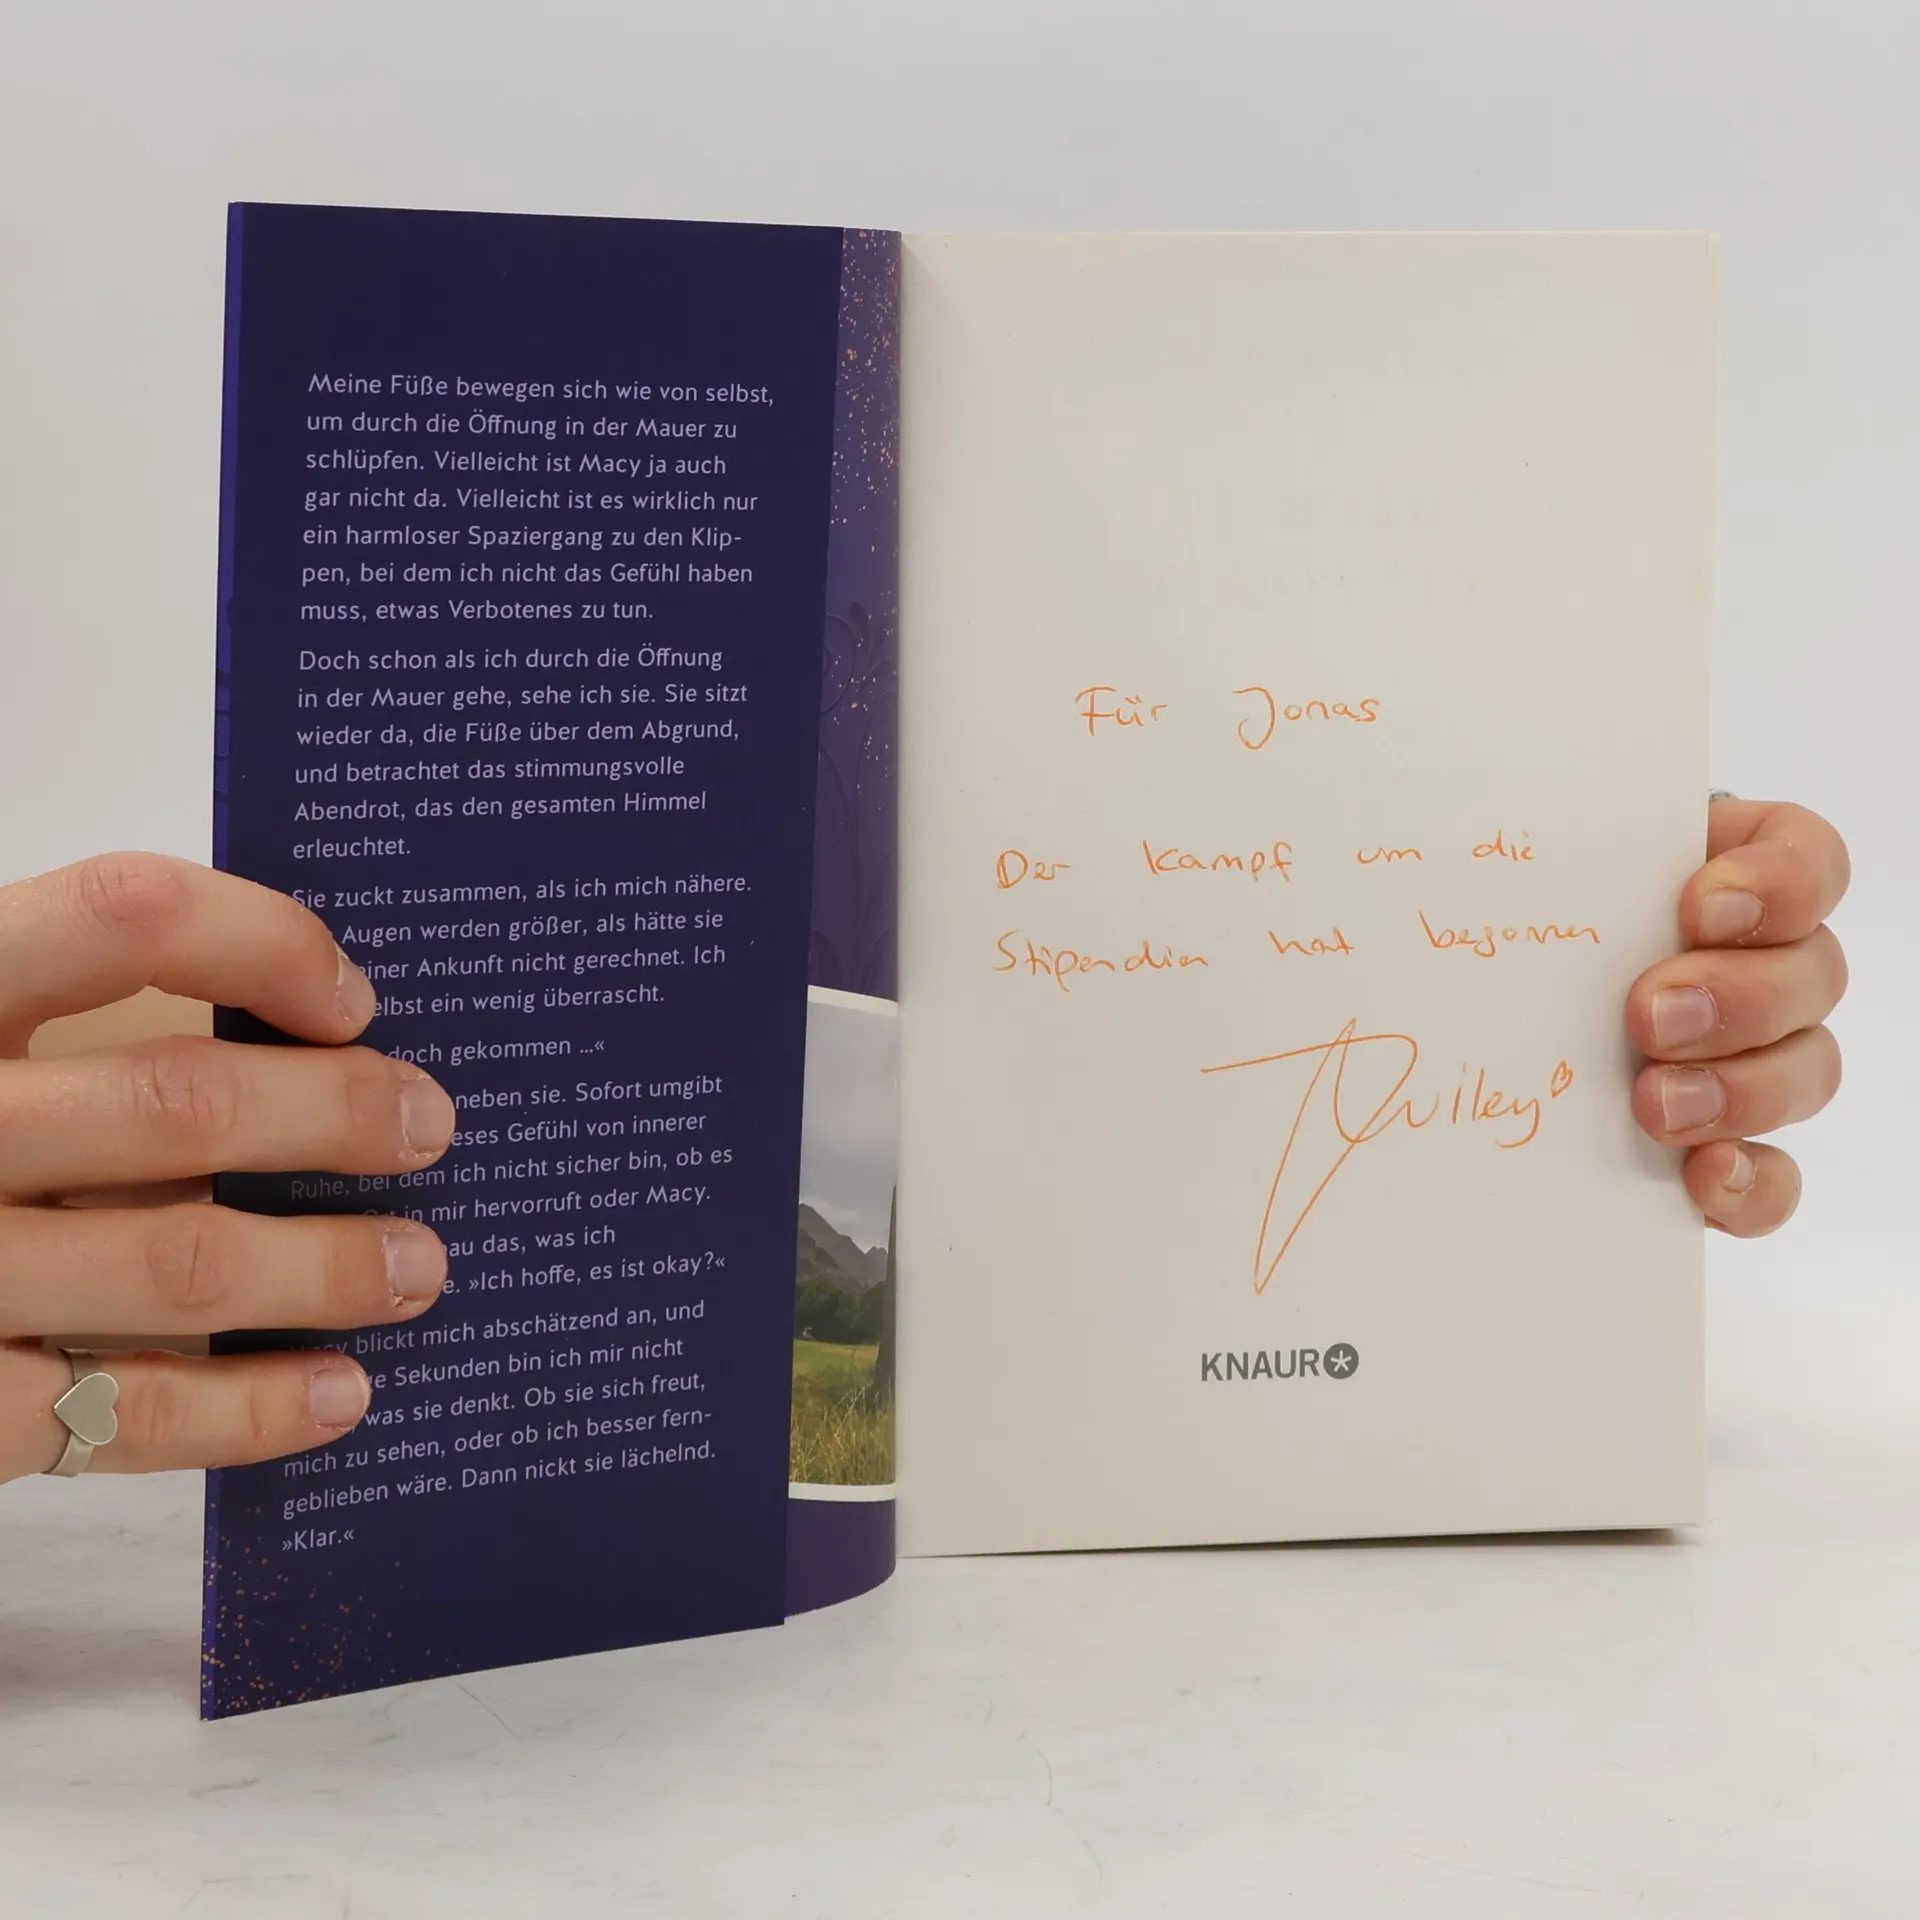 Meine Füße bewegen sich wie von selbst,
um durch die Öffnung in der Mauer zu
schlüpfen. Vielleicht ist Macy ja auch
gar nicht da. Vielleicht ist es wirklich nur
ein harmloser Spaziergang zu den Klip-
pen, bei dem ich nicht das Gefühl haben
muss, etwas Verbotenes zu tun.
Doch schon als ich durch die Öffnung
in der Mauer gehe, sehe ich sie. Sie sitzt
wieder da, die Füße über dem Abgrund,
und betrachtet das stimmungsvolle
Abendrot, das den gesamten Himmel
erleuchtet.
Sie zuckt zusammen, als ich mich nähere.
Augen werden größer, als hätte sie
einer Ankunft nicht gerechnet. Ich
elbst ein wenig überrascht.
doch gekommen ...«
neben sie. Sofort umgibt
eses Gefühl von innerer
Ruhe, bei dem ich nicht sicher bin, ob es
in mir hervorruft oder Macy.
au das, was ich
e. »Ich hoffe, es ist okay?«
blickt mich abschätzend an, und
e Sekunden bin ich mir nicht
was sie denkt. Ob sie sich freut,
mich zu sehen, oder ob ich besser fern-
geblieben wäre. Dann nickt sie lächelnd.
»Klar.«
Für Jonas
Der Kampf um die
Stipendien hat begonnen
KNAUR